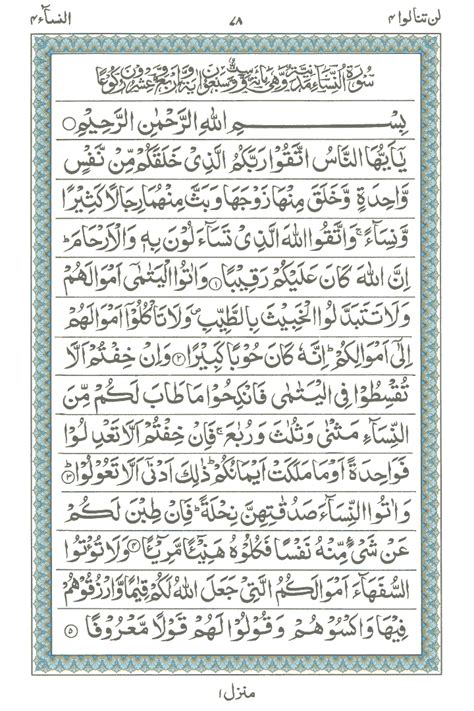 لن تنالوا ٤
٧٨
النسآء ٤
سُوْرَةُ النِّسَآءِ مَدَنِيَّةٌ وَّهِيَ مِائَةٌ وَّسِتٌّ وَّسَبْعُوْنَ اٰيَةً وَّاَرْبَعٌ وَّعِشْرُوْنَ رُكُوْعًا
بِسْمِ اللهِ الرَّحْمٰنِ الرَّحِيْمِ
يٰۤاَيُّهَا النَّاسُ اتَّقُوْا رَبَّكُمُ الَّذِيْ خَلَقَكُمْ مِّنْ نَّفْسٍ
وَّاحِدَةٍ وَّخَلَقَ مِنْهَا زَوْجَهَا وَبَثَّ مِنْهُمَا رِجَالًا كَثِيْرًا
وَّنِسَآءً ۚ وَاتَّقُوا اللهَ الَّذِيْ تَسَآءَلُوْنَ بِهٖ وَالْاَرْحَامَ ؕ
اِنَّ اللهَ كَانَ عَلَيْكُمْ رَقِيْبًا ۝۱ وَاٰتُوا الْيَتٰمٰۤى اَمْوَالَهُمْ
وَلَا تَتَبَدَّلُوا الْخَبِيْثَ بِالطَّيِّبِ ۪ وَلَا تَاْكُلُوْۤا اَمْوَالَهُمْ
اِلٰۤى اَمْوَالِكُمْ ؕ اِنَّهٗ كَانَ حُوْبًا كَبِيْرًا ۝۲ وَاِنْ خِفْتُمْ اَلَّا
تُقْسِطُوْا فِي الْيَتٰمٰى فَانْكِحُوْا مَا طَابَ لَكُمْ مِّنَ
النِّسَآءِ مَثْنٰى وَثُلٰثَ وَرُبٰعَ ۚ فَاِنْ خِفْتُمْ اَلَّا تَعْدِلُوْا
فَوَاحِدَةً اَوْ مَا مَلَكَتْ اَيْمَانُكُمْ ؕ ذٰلِكَ اَدْنٰۤى اَلَّا تَعُوْلُوْا ۝۳ؕ
وَاٰتُوا النِّسَآءَ صَدُقٰتِهِنَّ نِحْلَةً ؕ فَاِنْ طِبْنَ لَكُمْ
عَنْ شَيْءٍ مِّنْهُ نَفْسًا فَكُلُوْهُ هَنِيْٓئًا مَّرِيْٓئًا ۝۴ وَلَا تُؤْتُوا
السُّفَهَآءَ اَمْوَالَكُمُ الَّتِيْ جَعَلَ اللهُ لَكُمْ قِيٰمًا وَّارْزُقُوْهُمْ
فِيْهَا وَاكْسُوْهُمْ وَقُوْلُوْا لَهُمْ قَوْلًا مَّعْرُوْفًا ۝۵
منزل ۱